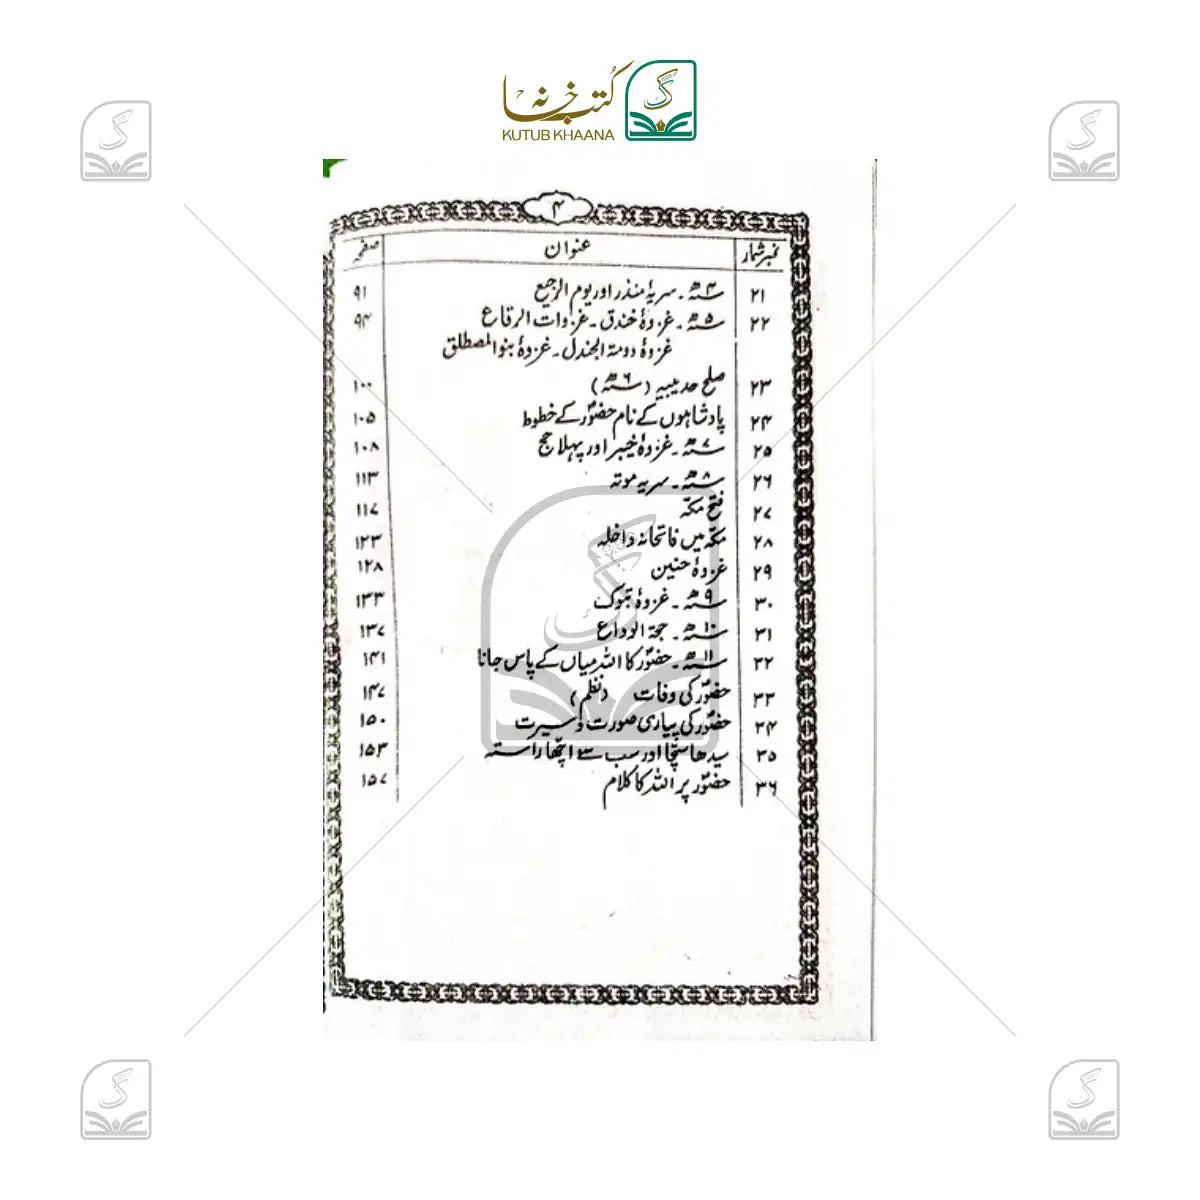 کتب خانہ
KUTUB KHAANA
۴
نمبر شمار عنوان صفحہ
۲۱ ۴ھ ۔ سریۂ منذر اور یوم الرجیع ۹۱
۲۲ ۵ھ ۔ غزوۂ خندق ۔ غزوات الرقاع ۹۴
غزوۂ دومۃ الجندل ۔ غزوۂ بنو المصطلق
۲۳ صلح حدیبیہ (۶ھ) ۱۰۰
۲۴ پادشاہوں کے نام حضورؐ کے خطوط ۱۰۵
۲۵ ۷ھ ۔ غزوۂ خیبر اور پہلا حج ۱۰۸
۲۶ ۸ھ ۔ سریہ موتہ ۱۱۳
۲۷ فتح مکّہ ۱۱۷
۲۸ مکّہ میں فاتحانہ داخلہ ۱۲۳
۲۹ غزوۂ حنین ۱۲۸
۳۰ ۹ھ ۔ غزوۂ تبوک ۱۳۳
۳۱ ۱۰ھ ۔ حجۃ الوداع ۱۳۷
۳۲ ۱۱ھ ۔ حضورؐ کا اللہ میاں کے پاس جانا ۱۴۱
۳۳ حضورؐ کی وفات (نظم) ۱۴۷
۳۴ حضورؐ کی پیاری صورت و سیرت ۱۵۰
۳۵ سیدھا سچّا اور سب سے اچھا راستہ ۱۵۳
۳۶ حضورؐ پر اللہ کا کلام ۱۵۷